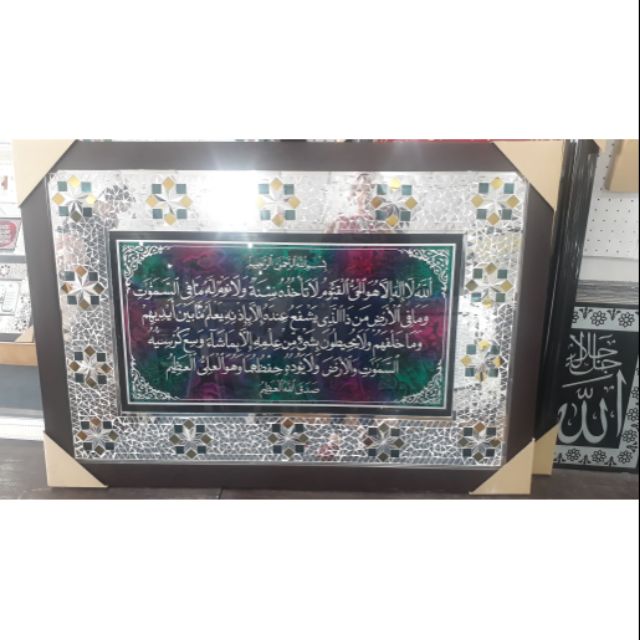 بِسْمِ اللَّهِ الرَّحْمَنِ الرَّحِيمِ
اللَّهُ لَا إِلَهَ إِلَّا هُوَ الْحَيُّ الْقَيُّومُ لَا تَأْخُذُهُ سِنَةٌ وَلَا نَوْمٌ لَهُ مَا فِي السَّمَوَتِ
وَمَا فِي الْأَرْضِ مَنْ ذَا الَّذِي يَشْفَعُ عِنْدَهُ إِلَّا بِإِذْنِهِ يَعْلَمُ مَا بَيْنَ أَيْدِيهِمْ
وَمَا خَلْفَهُمْ وَلَا يُحِيطُونَ بِشَيْءٍ مِنْ عِلْمِهِ إِلَّا بِمَا شَاءَ وَسِعَ كُرْسِيُّهُ
السَّمَوَتِ وَالْأَرْضَ وَلَا يَئُودُهُ حِفْظُهُمَا وَهُوَ الْعَلِيُّ الْعَظِيمُ
صَدَقَ اللَّهُ الْعَظِيمُ
جل جلاله
الله